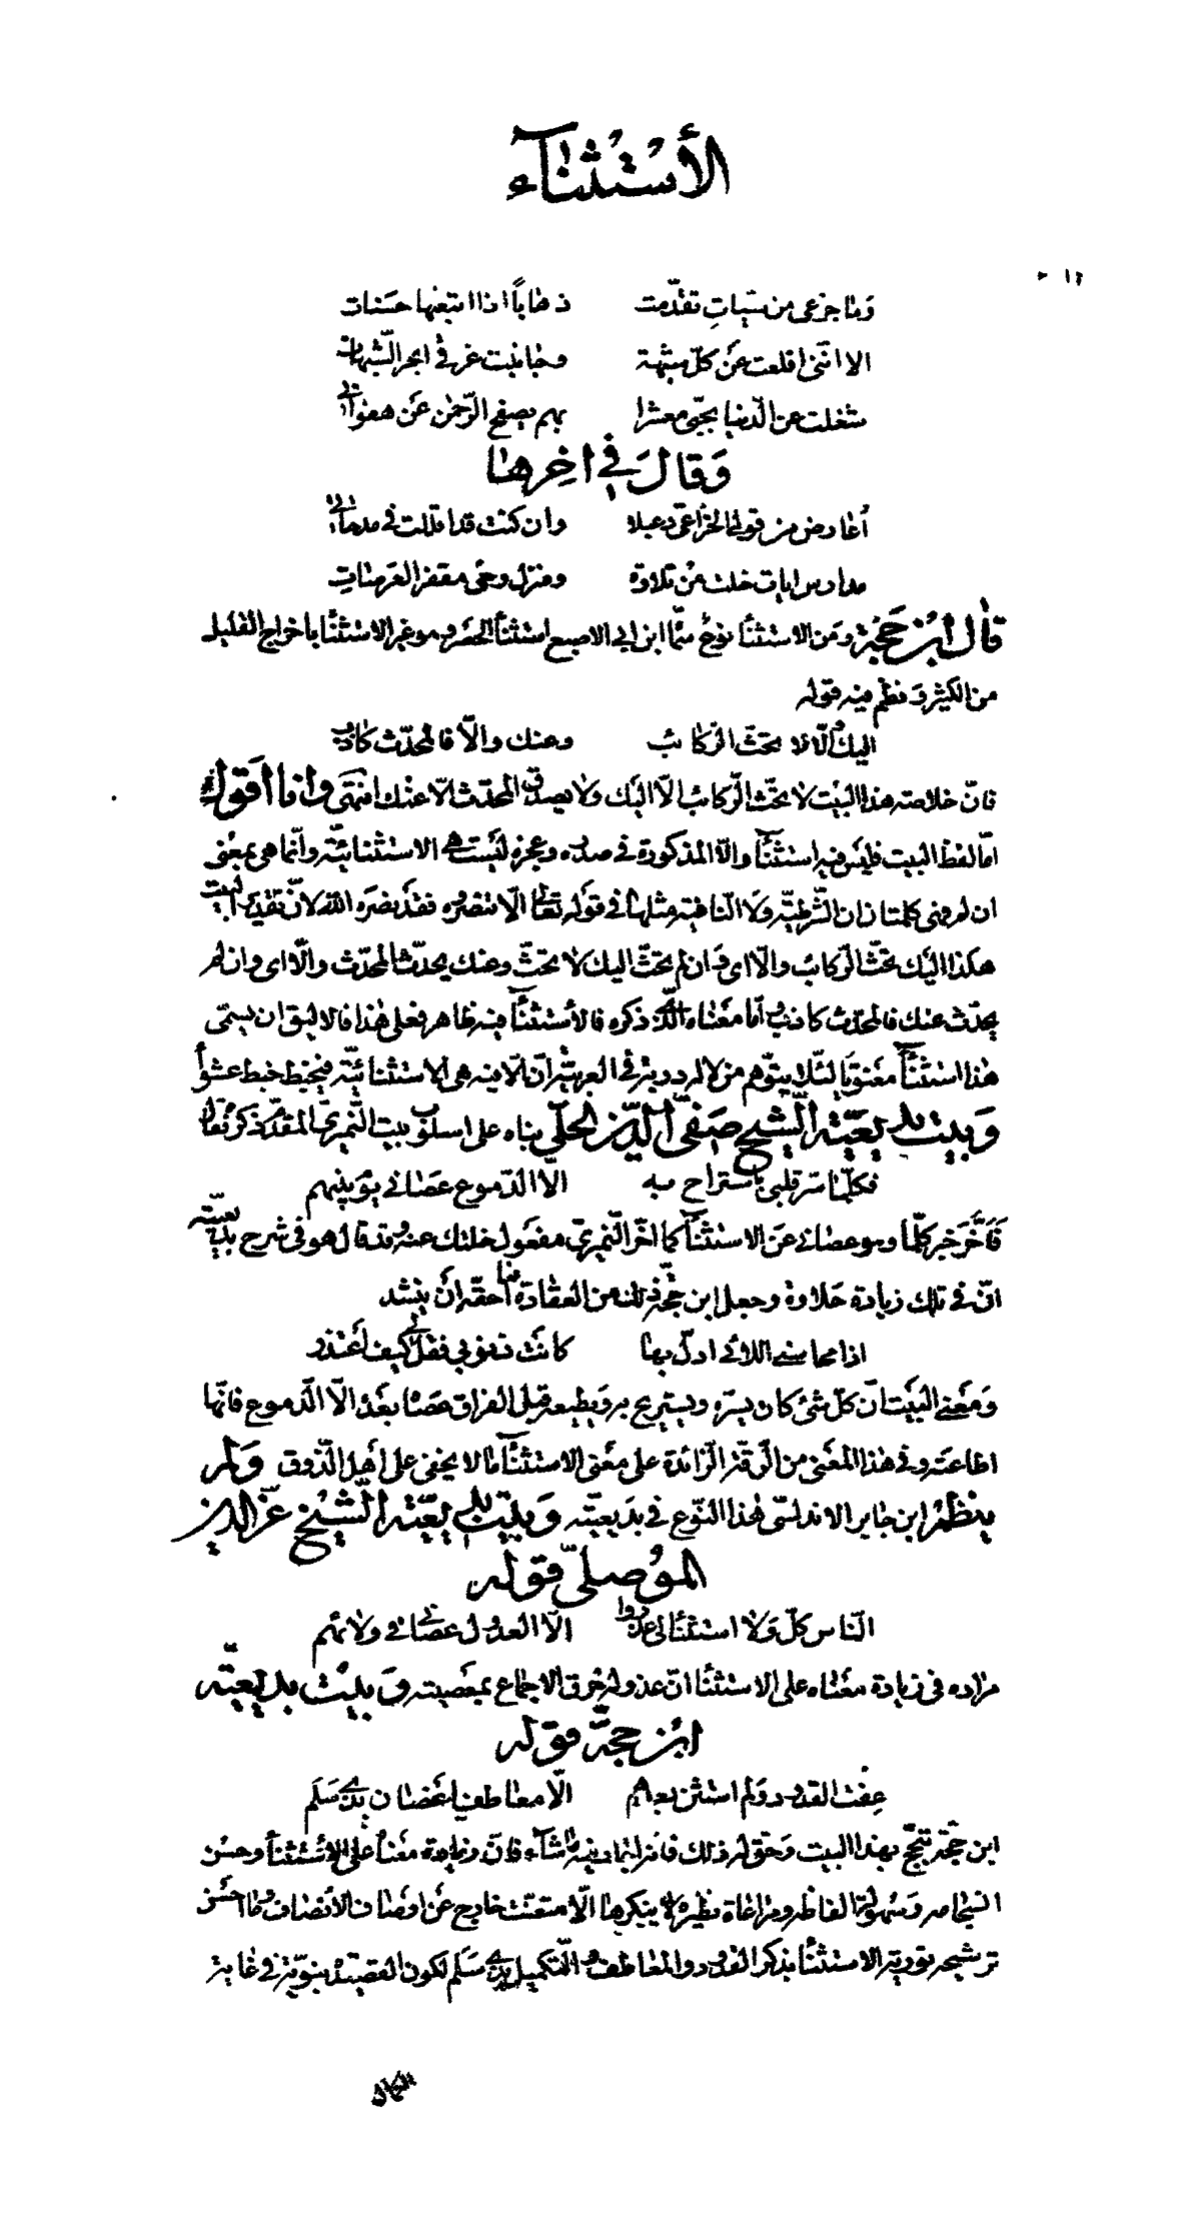 الأسْتثناء
وَما جزعي من سيّآتٍ تقدّمت ذهاباً اذا اتبعتها حسَنات
الا انّني اقلعت عَن كلّ شبهة وجانبت غرقي ابحر الشّبهات
شغلت عن الدّنيا بحبّي معشرا بهم يصفح الرّحمن عَن هفواتي
وَقالَ في اخِرها
أعارض من قول الخزاعيّ دعبلا وان كنت قد اقللت في مدحاتي
مدارس ايات خلت من تلاوة ومنزل وحي مقفر العَرصات
قال ابن حَجّة ومن الاستثنأ نوعٌ سمّاه ابن ابي الاصبع استثنأ الحصر وهو غير الاستثنأ باخراج القليل
من الكثير وَنظم فيه قوله
اليك والّا لا تحثّ الرّكائب وعنك والّا فالمحدّث كاذب
فانّ خلاصة هذا البيت لا تحثّ الرّكائب الّا اليَك ولا يصدق المحدّث الّا عنك انتهى وانا اقول
امّا لفظ البيت فليسَ فيه استثنأ والّا المذكورة في صدره وعجزه ليَست هي الاستثنائيّة وانّما هي بمعنى
ان لم وهي كلمتان ان الشّرطيّة ولا النّافية مثلها في قوله تعَالى الّا تنصروه فقد نصَره الله لانّ تقدير البيت
هكذا اليَك تحثّ الرّكائب والّا اى وَان لم تحثّ اليك لا تحثّ وعنك يحدّث المحدّث والّا اى وان لم
يحدّث عنك فالمحدّث كاذب وامّا معْناه الّذي ذكره فالأستثنأ فيه ظاهر فعلى هٰذا فالاليق ان يسمّى
هٰذا استثنأ معَنويّا لئلّا يتوّهم من لا له دربة في العربيّة انّ الّا فيه هي الاستثنائيّة فيخبط خبط عشوأ
وَبيت بديعيّة الشّيخ صَفيّ الدّين الحلّي بناه على اسلوب بيت النّميريّ المقدّم ذكره فقال
فكلّما سرّ قلبي واستراح به الّا الدّموع عصَاني بعْد بينهم
فأخّر خبر كلّما وهو عصاني عَن الاستثنأ كما اخّر النّميريّ مفعول خلتك عنه وقد قال هو في شرح بديعيّته
انّ في تلك زيادة حَلاوة وجعل ابن حجّة ذلك من العقادة فما احقّه ان ينشد
اذا محاسني اللائي ادلّ بها كانَت ذنوبي فقل لي كيف اعْتذر
وَمعْنى البيَت انّ كلّ شئ كان يسرّه ويستريح به ويطيعه قبل الفراق عَصاه بعَده الّا الدّموع فانّها
اطاعته وفي هٰذا المعَنى من الرّقة الزّائدة على معْنى الاستثنأ ما لا يخفى على أهل الذّوق وَلم
ينظم ابن جابر الاندلسيّ هٰذا النّوع في بديعيّته وَبيت بديعيّة الشّيخ عزّ الدين
الموُصليّ قوله
النّاس كلّ وَلا استثنأ لي عذروا الّا العذول عصَاني في ولائهم
مراده في زيادة معَناه على الاستثنأ انّ عذوله خرق الاجماع بمعَصيته وَبيْت بديعيّة
ابن حجّة قوله
عِفت القدود وَلم استثن بعدهم الّا معاطف اغصَان بذي سَلَم
ابن حجّة تبجّح بهذا البيت وَحقّ له ذلك فانّه اجاد فيه ما شآء فانّ زيادة معْناه على الاسْتثنأ وحسْن
انسجامه وَسهولة الفاظه ومراعاة نظيره لا ينكرها الّا متعنّت خارج عَن اوصَاف الأنصاف وما احسَن
ترشيحه تورية الاستثنأ بذكر القدود والمعاطف والتكميل بذي سَلَم لكون القصيدة نبويّة في غاية
الكمال